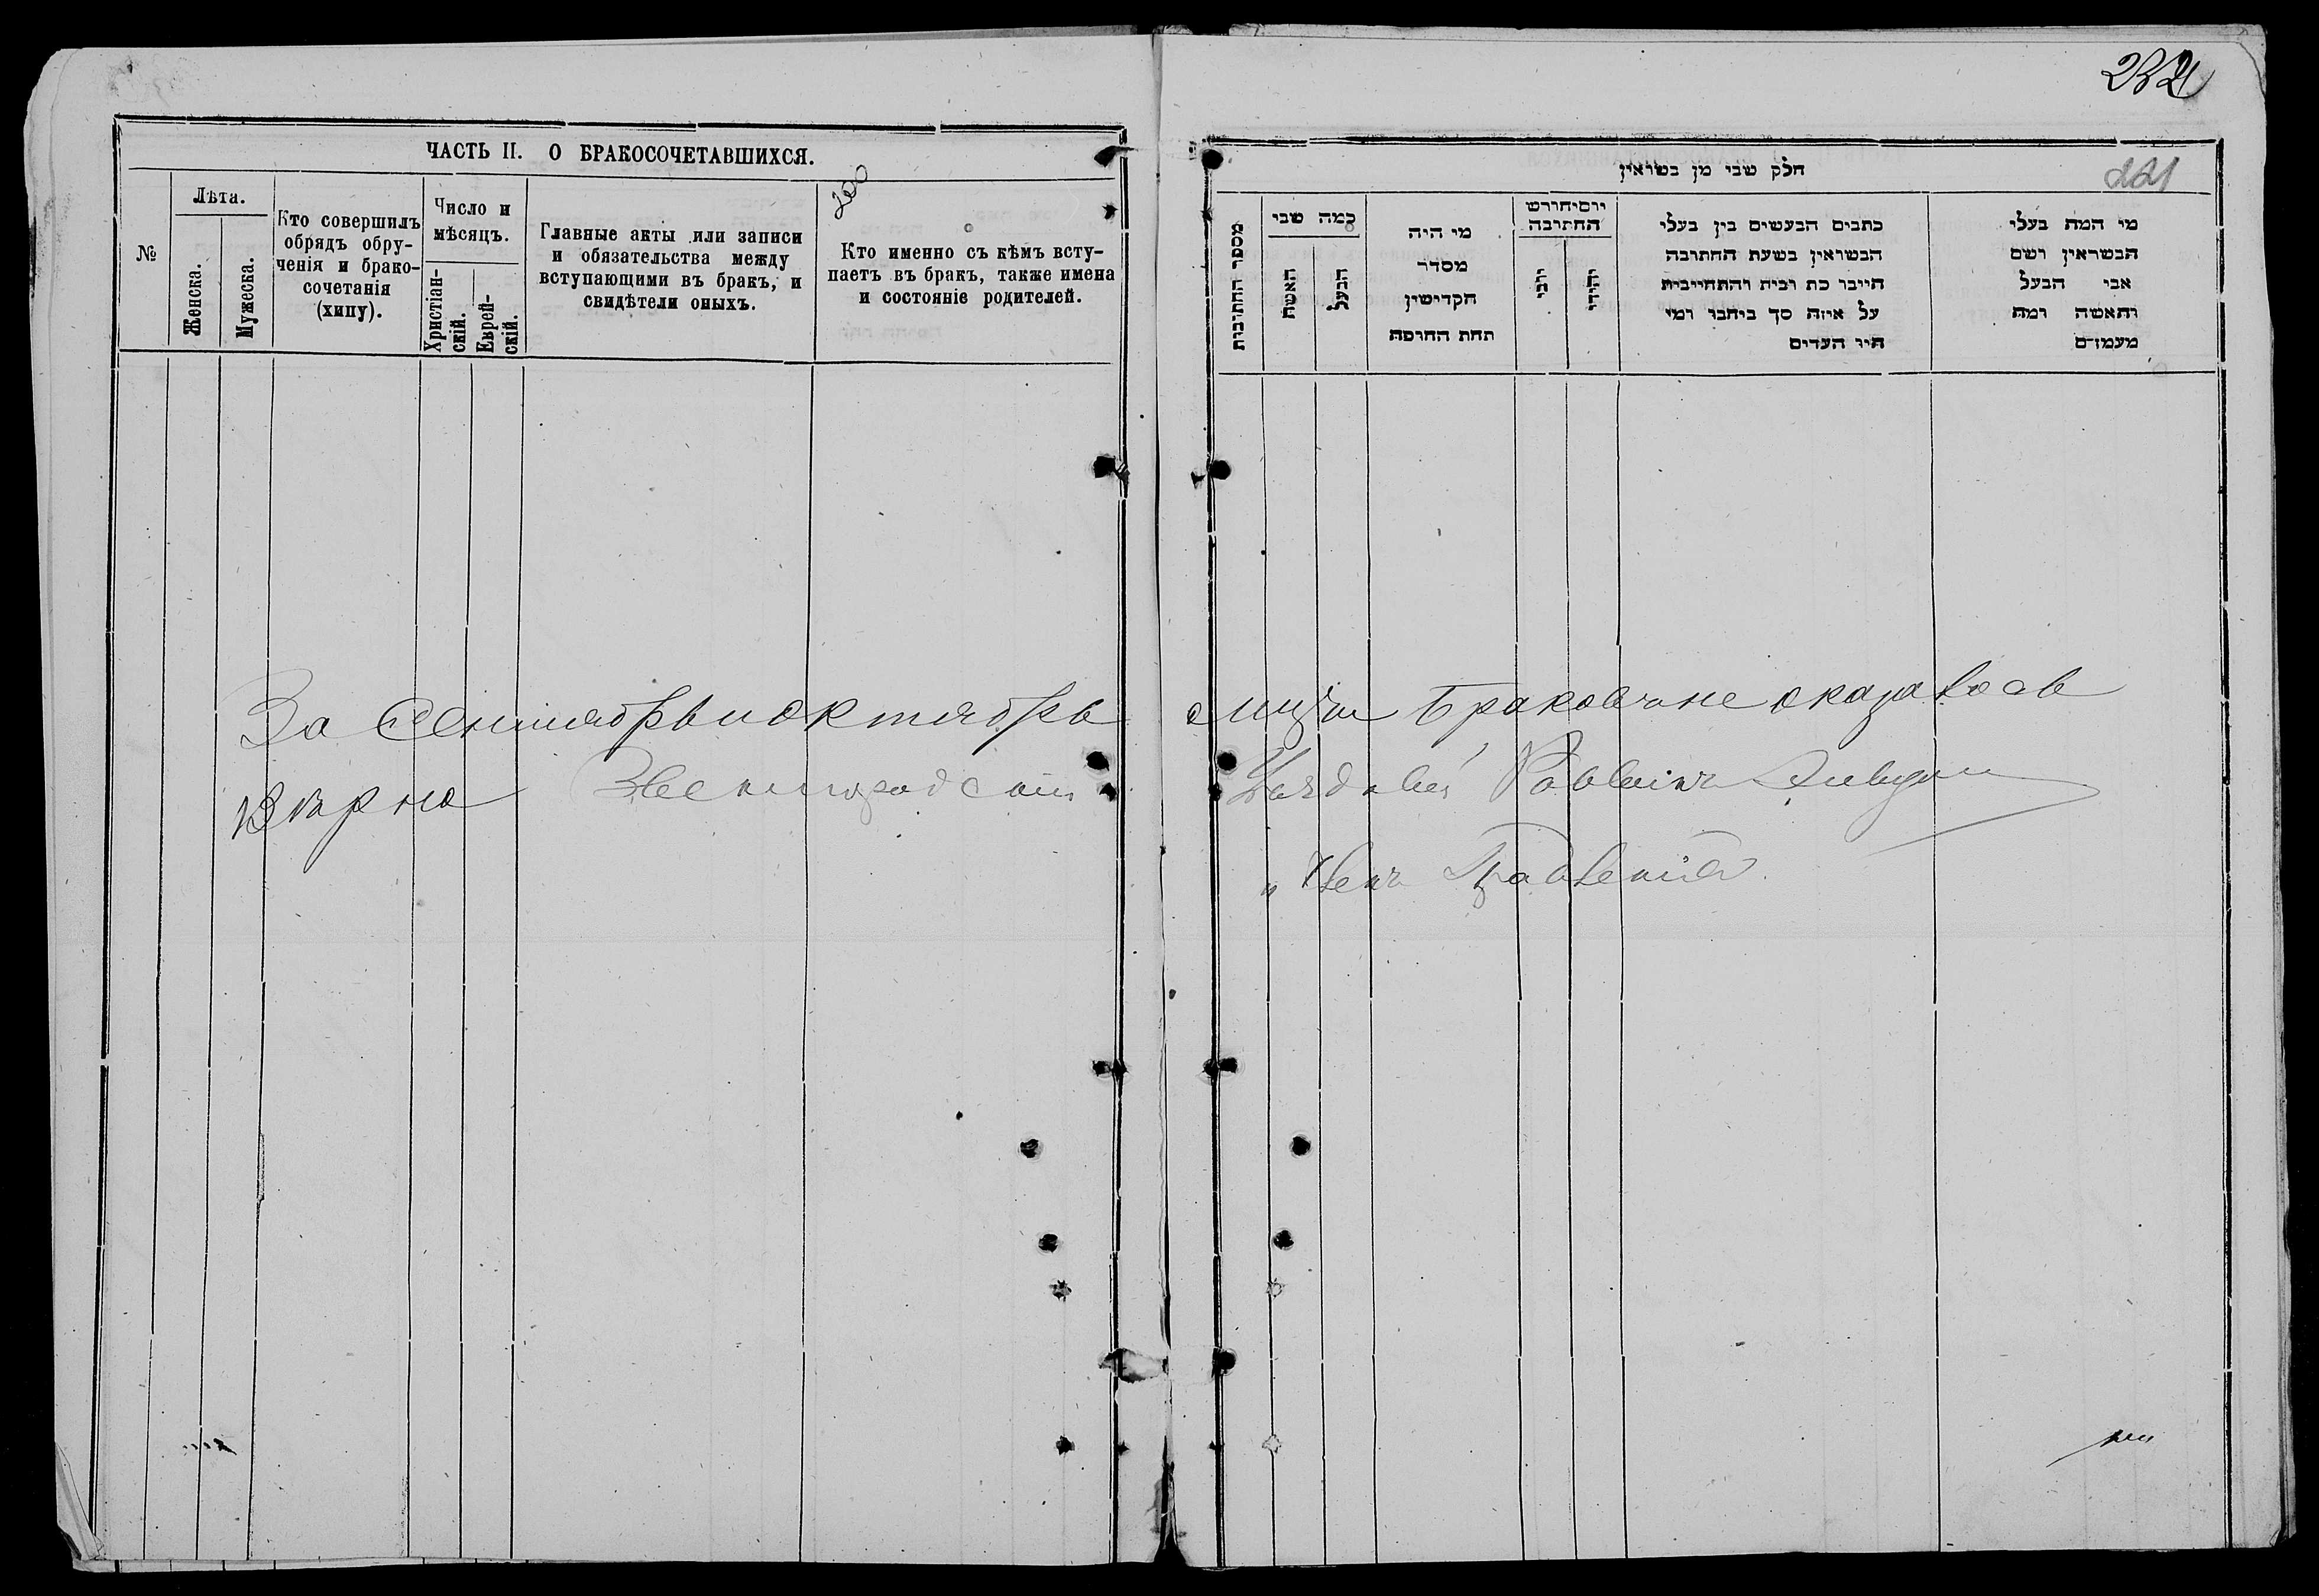 232
ЧАСТЬ II. О БРАКОСОЧЕТАВШИХСЯ.
200
№
Лѣта.
Женска.
Мужеска.
Кто совершилъ
обрядъ обру-
ченія и брако-
сочетанія
(хипу).
Число и
мѣсяцъ.
Христіан-
скій.
Еврей-
скій.
Главные акты или записи
и обязательства между
вступающими въ бракъ, и
свидѣтели оныхъ.
Кто именно съ кѣмъ всту-
паетъ въ бракъ, также имена
и состояніе родителей.
חלק שני מן נשואין
221
מספר החתונות
כמה שני
האשה
הבעל
מי היה
מסדר
הקדישין
תחת החופה
יום וחורש
החתונה
יוני
יהודי
כתבים הנעשים בין בעלי
הנשואין בשעת החתונה
היינו כת ובית והתחייבות
על איזה סך ביחבו ומי
היו העדים
מי המה בעלי
הנשואין ושם
אבי הבעל
והאשה ומה
מעמדם
За Сентябрь и октябрь мцы браковъ не оказалось
Вѣрно Звенигородскій Раввинъ
Членъ Правленія